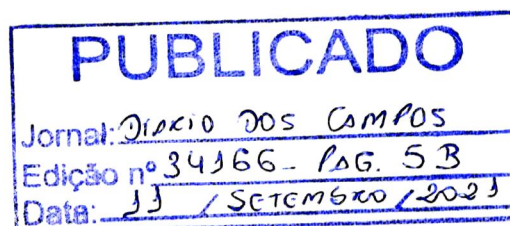 PUBLICADO
Jornal: DIÁRIO DOS CAMPOS
Edição nº 34166 - PAG. 5B
Data: 11 / SETEMBRO / 2021